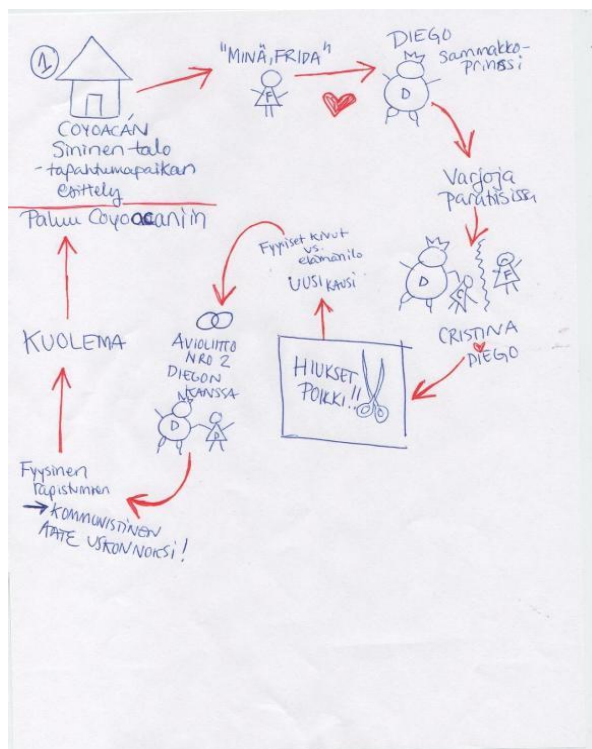 1
COYOACÁN
Sininen talo
-tapahtumapaikan
esittely
"MINÄ, FRIDA"
F
DIEGO
sammakko-
prinssi
D
Varjoja
paratiisissa
D
C
F
CRISTINA
DIEGO
HIUKSET
POIKKI!!
UUSI KAUSI
Fyysiset kivut
vs.
elämänilo
AVIOLIITTO
NRO 2
DIEGON
KANSSA
D
Fyysinen
rapistuminen
→ KOMMUNISTINEN
AATE USKONNOKSI!
KUOLEMA
Paluu Coyoacaniin